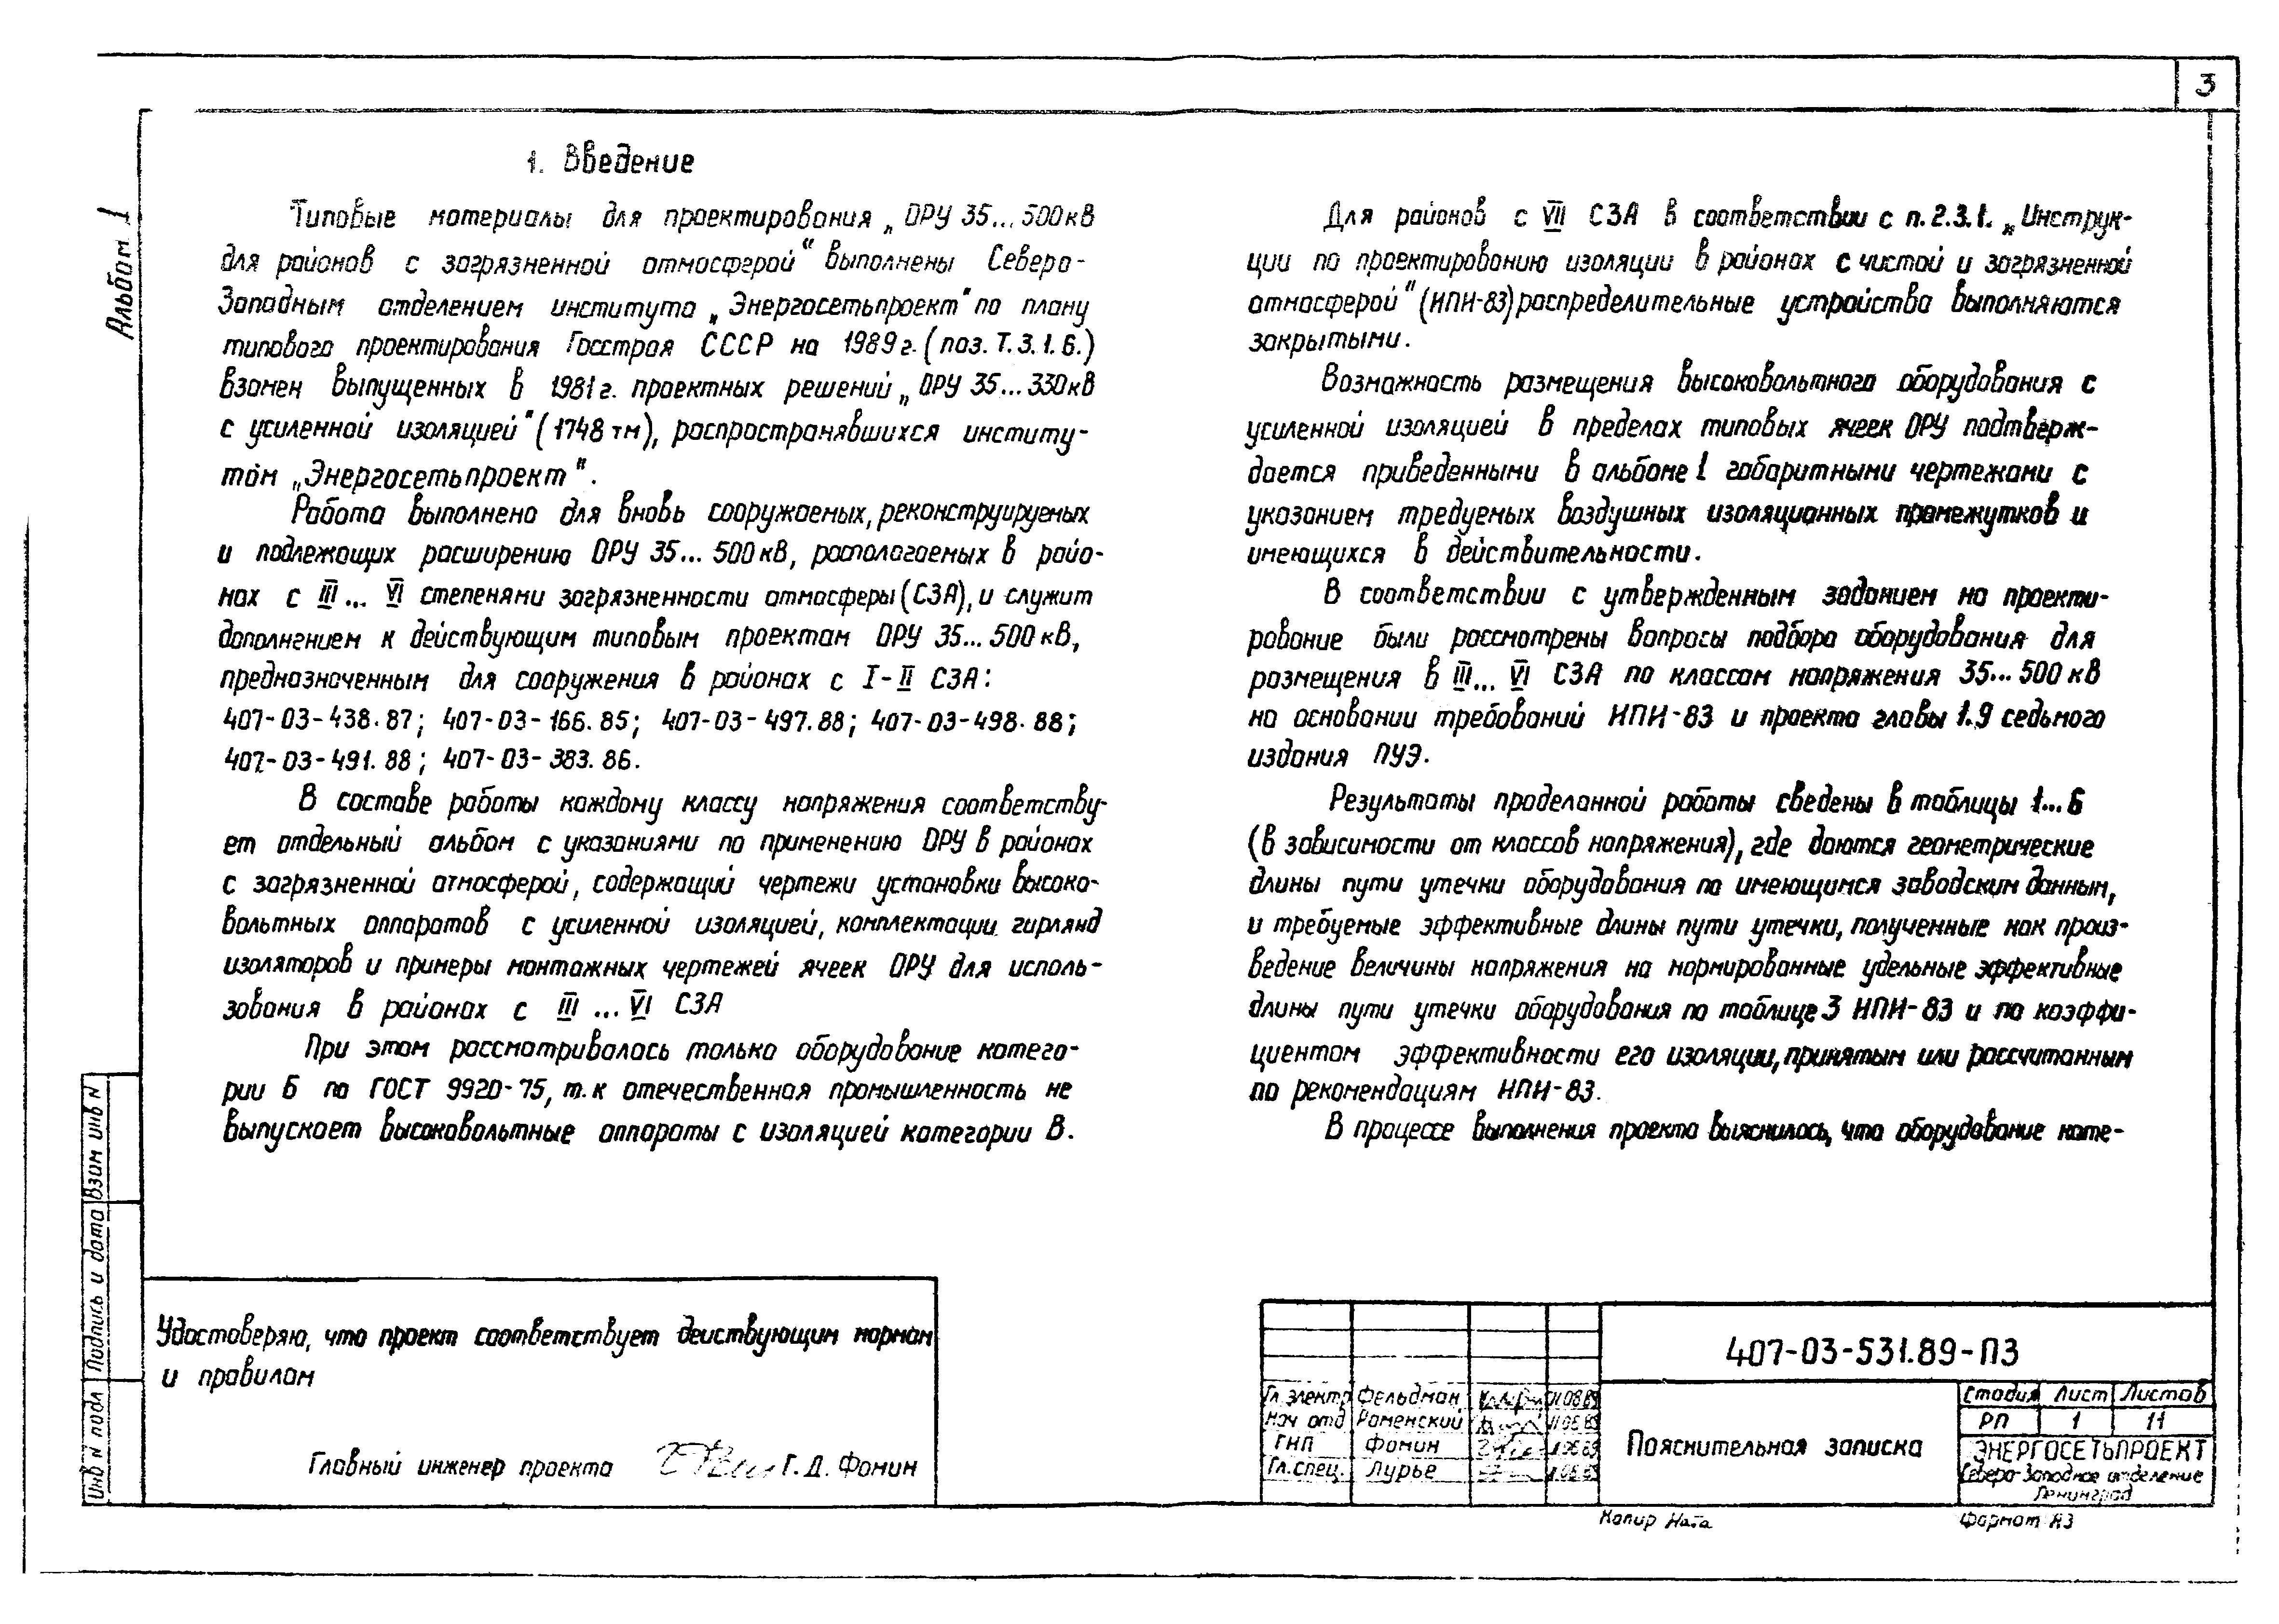 3
Альбом 1
1. Введение
Типовые материалы для проектирования „ОРУ 35... 500кВ
для районов с загрязненной атмосферой“ выполнены Северо-
Западным отделением института „Энергосетьпроект" по плану
типового проектирования Госстроя СССР на 1989г. (поз. Т. 3. 1. 6.)
взамен выпущенных в 1981г. проектных решений „ОРУ 35... 330кВ
с усиленной изоляцией" (1748 тм), распространявшихся институ-
том „Энергосетьпроект“.
Работа выполнена для вновь сооружаемых, реконструируемых
и подлежащих расширению ОРУ 35... 500кВ, распологаемых в райо-
нах с III... VI степенями загрязненности атмосферы (СЗА), и служит
дополнением к действующим типовым проектам ОРУ 35... 500 кВ,
предназначенным для сооружения в районах с I-II СЗА:
407-03-438.87; 407-03-166.85; 407-03-497.88; 407-03-498.88;
407-03-491.88; 407-03-383.86.
В составе работы каждому классу напряжения соответству-
ет отдельный альбом с указаниями по применению ОРУ в районах
с загрязненной атмосферой, содержащий чертежи установки высоко-
вольтных аппаратов с усиленной изоляцией, комплектации гирлянд
изоляторов и примеры монтажных чертежей ячеек ОРУ для исполь-
зования в районах с III ... VI СЗА
При этом рассматривалось только оборудование катего-
рии Б по ГОСТ 9920-75, т.к отечественная промышленность не
выпускает высоковольтные аппараты с изоляцией категории В.
Для районов с VII СЗА в соответствии с п. 2.3.1. „Инструк-
ции по проектированию изоляции в районах с чистой и загрязненной
атмосферой“ (ИПИ-83) распределительные устройства выполняются
закрытыми.
Возможность размещения высоковольтного оборудования с
усиленной изоляцией в пределах типовых ячеек ОРУ подтверж-
дается приведенными в альбоме 1 габаритными чертежами с
указанием тредуемых воздушных изоляционных промежутков и
имеющихся в действительности.
В соответствии с утвержденным заданием на проекти-
рование были рассмотрены вопросы подбора оборудования для
размещения в III... VI СЗА по классам напряжения 35... 500 кВ
на основании требований ИПИ-83 и проекта главы 1.9 седьмого
издания ПУЭ.
Результаты проделанной работы сведены в таблицы 1... 6
(в зависимости от классов напряжения), где даются геометрические
длины пути утечки оборудования по имеющимся заводским данным,
и требуемые эффективные длины пути утечки, полученные как произ-
ведение величины напряжения на нормированные удельные эффективные
длины пути утечки оборудования по таблице 3 ИПИ-83 и по коэффи-
циентам эффективности его изоляции, принятым или рассчитанным
по рекомендациям ИПИ-83.
В процессе выполнения проекта выяснилось, что оборудование кате-
Взам инв N
Подпись и дата
Инв N подл
Удостоверяю, что проект соответствует действующим нормам
и правилам
Главный инженер проекта Г. Д. Фомин
407-03-531.89-ПЗ
Гл электр Фельдман
Нач отд Роменский
ГИП Фомин
Гл. спец. Лурье
Пояснительная записка
Стадия Лист Листов
РП 1 11
ЭНЕРГОСЕТЬПРОЕКТ
Северо-Западное отделение
Ленинград
Копир Ната Формат А3